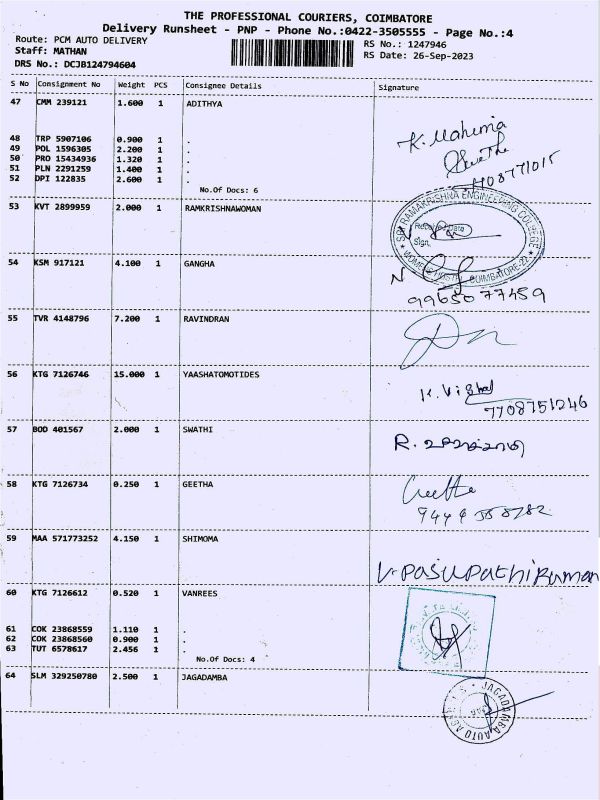 THE PROFESSIONAL COURIERS, COIMBATORE
Delivery Runsheet - PNP - Phone No.:0422-3505555 - Page No.:4
Route: PCM AUTO DELIVERY
RS No.: 1247946
Staff: MATHAN
RS Date: 26-Sep-2023
DRS No.: DCJB124794604
S No Consignment No Weight PCS Consignee Details Signature
47 CMM 239121 1.600 1 ADITHYA
K. Mahima
48 TRP 5907106 0.900 1 .
49 POL 1596305 2.200 1 .
50 PRO 15434936 1.320 1 .
51 PLN 2291259 1.400 1 .
52 DPI 122835 2.600 1 .
No.Of Docs: 6
53 KVT 2899959 2.000 1 RAMKRISHNAWOMAN
SRI RAMAKRISHNA ENGINEERING COLLEGE
Sign.
WOMEN'S HOSTEL COIMBATORE-22
54 KSM 917121 4.100 1 GANGHA
9965077459
55 TVR 4148796 7.200 1 RAVINDRAN
56 KTG 7126746 15.000 1 YAASHATOMOTIDES
K. Vishal
7708751246
57 BOD 401567 2.000 1 SWATHI
58 KTG 7126734 0.250 1 GEETHA
Geetha
59 MAA 571773252 4.150 1 SHIMOMA
V. Pasupathi Kumar
60 KTG 7126612 0.520 1 VANREES
61 COK 23868559 1.110 1 .
62 COK 23868560 0.900 1 .
63 TUT 6578617 2.456 1 .
No.Of Docs: 4
64 SLM 329250780 2.500 1 JAGADAMBA
JAGADAMBA AUTO AGENCIES